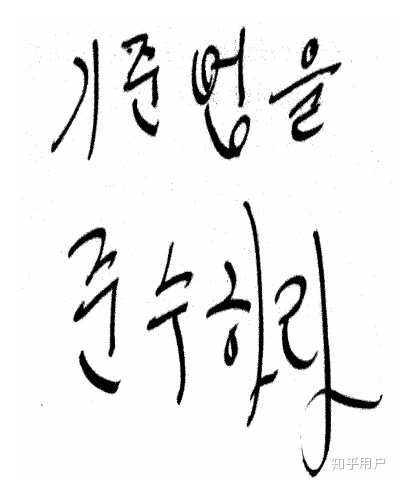 기준법을
준수하라
知乎用户